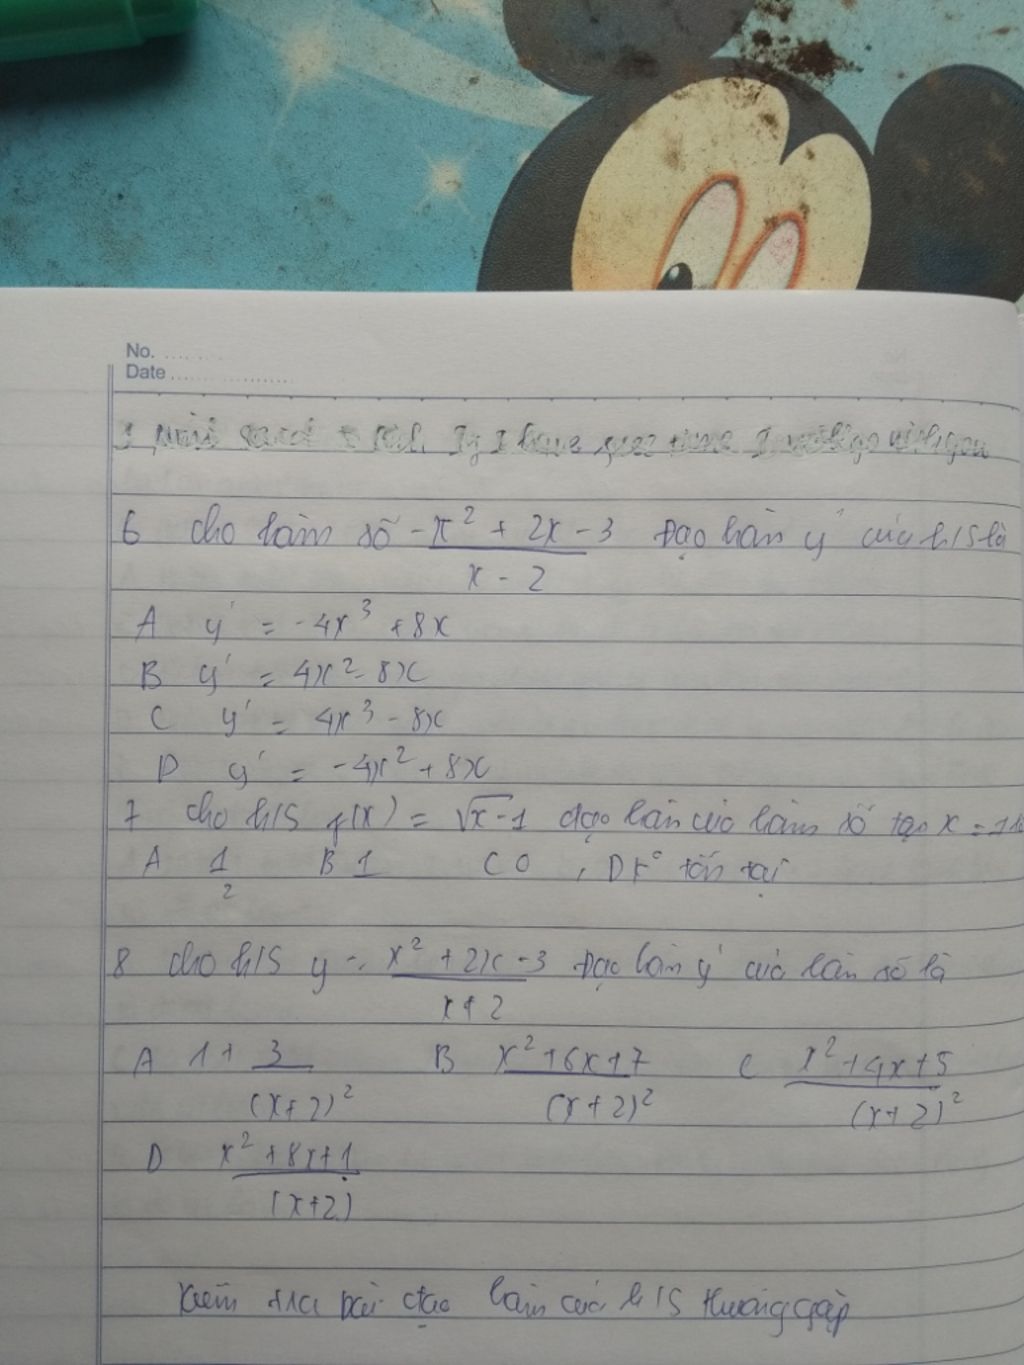 No. ........
Date ....................
6 cho hàm số -x² + 2x - 3 Đạo hàm y' của h/S là
x - 2
A y' = -4x³ + 8x
B y' = 4x² - 8x
C y' = 4x³ - 8x
D y' = -4x² + 8x
7 cho h/S f(x) = √x-1 đạo hàm của hàm số tại x = 1
A 1 B 1 C 0 , D k° tồn tại
2
8 cho h/S y = x² + 2x - 3 Đạo hàm y' của hàm số là
x + 2
A 1 + 3 B x² + 6x + 7 C x² + 4x + 5
(x+2)² (x+2)² (x+2)²
D x² + 8x + 1
(x+2)
Kiểm tra bài đạo hàm các h/S thường gặp